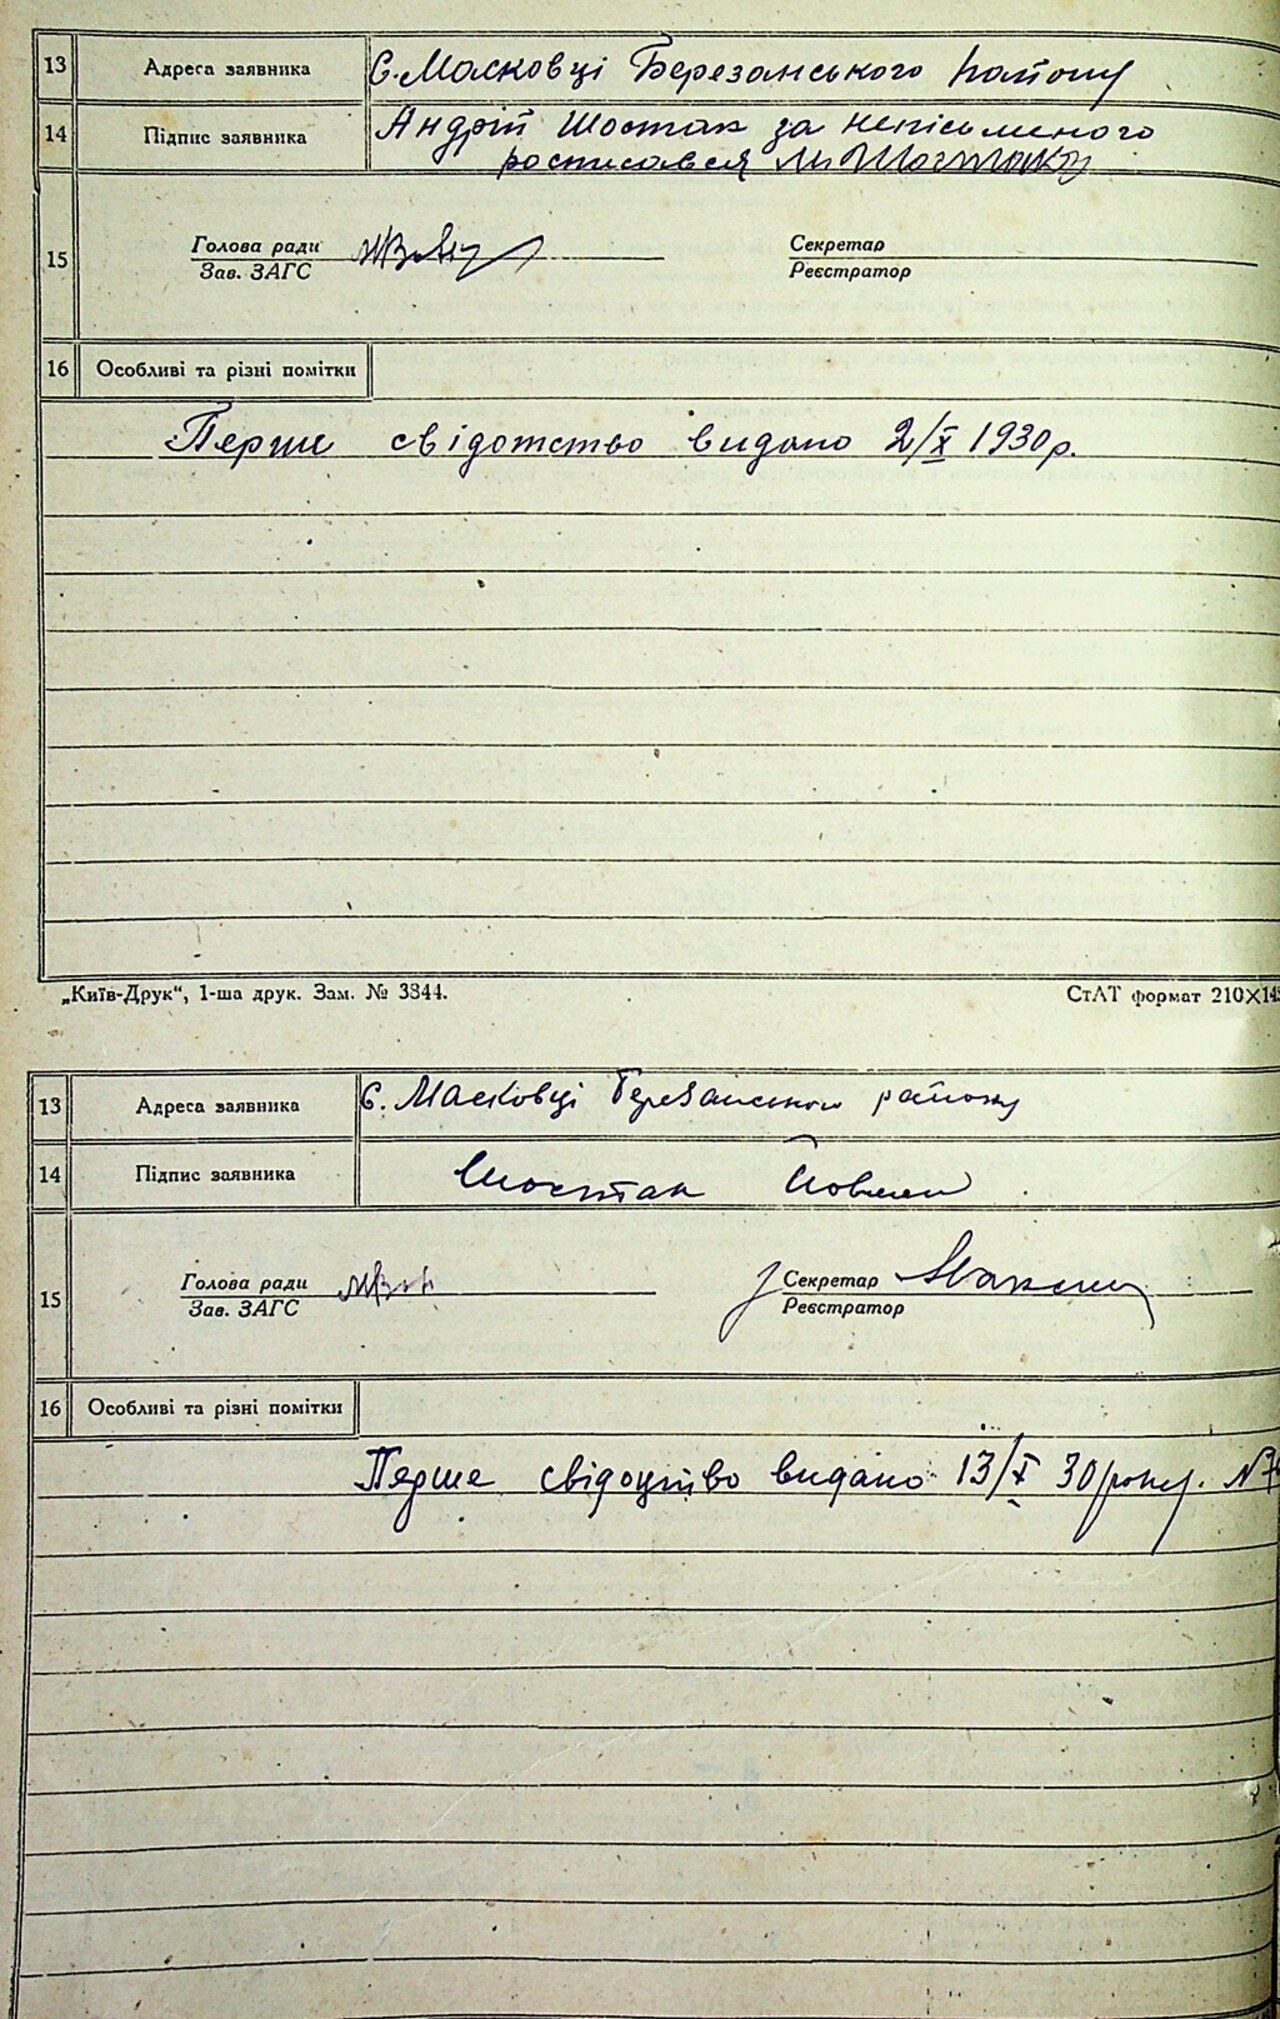 13 Адреса заявника С. Масковці Березанського району
14 Підпис заявника Андрій Шостак за непісьменого
росписався Шостак
15 Голова ради Секретар
Зав. ЗАГС Реєстратор
16 Особливі та різні помітки
Перше свідотство видано 2/X 1930 р.
„Київ-Друк“, 1-ша друк. Зам. № 3344. СтАТ формат 210×14
13 Адреса заявника С. Масковці Березанського району
14 Підпис заявника Шостак
15 Голова ради Секретар
Зав. ЗАГС Реєстратор
16 Особливі та різні помітки
Перше свідоцтво видано 13/X 30 року. №